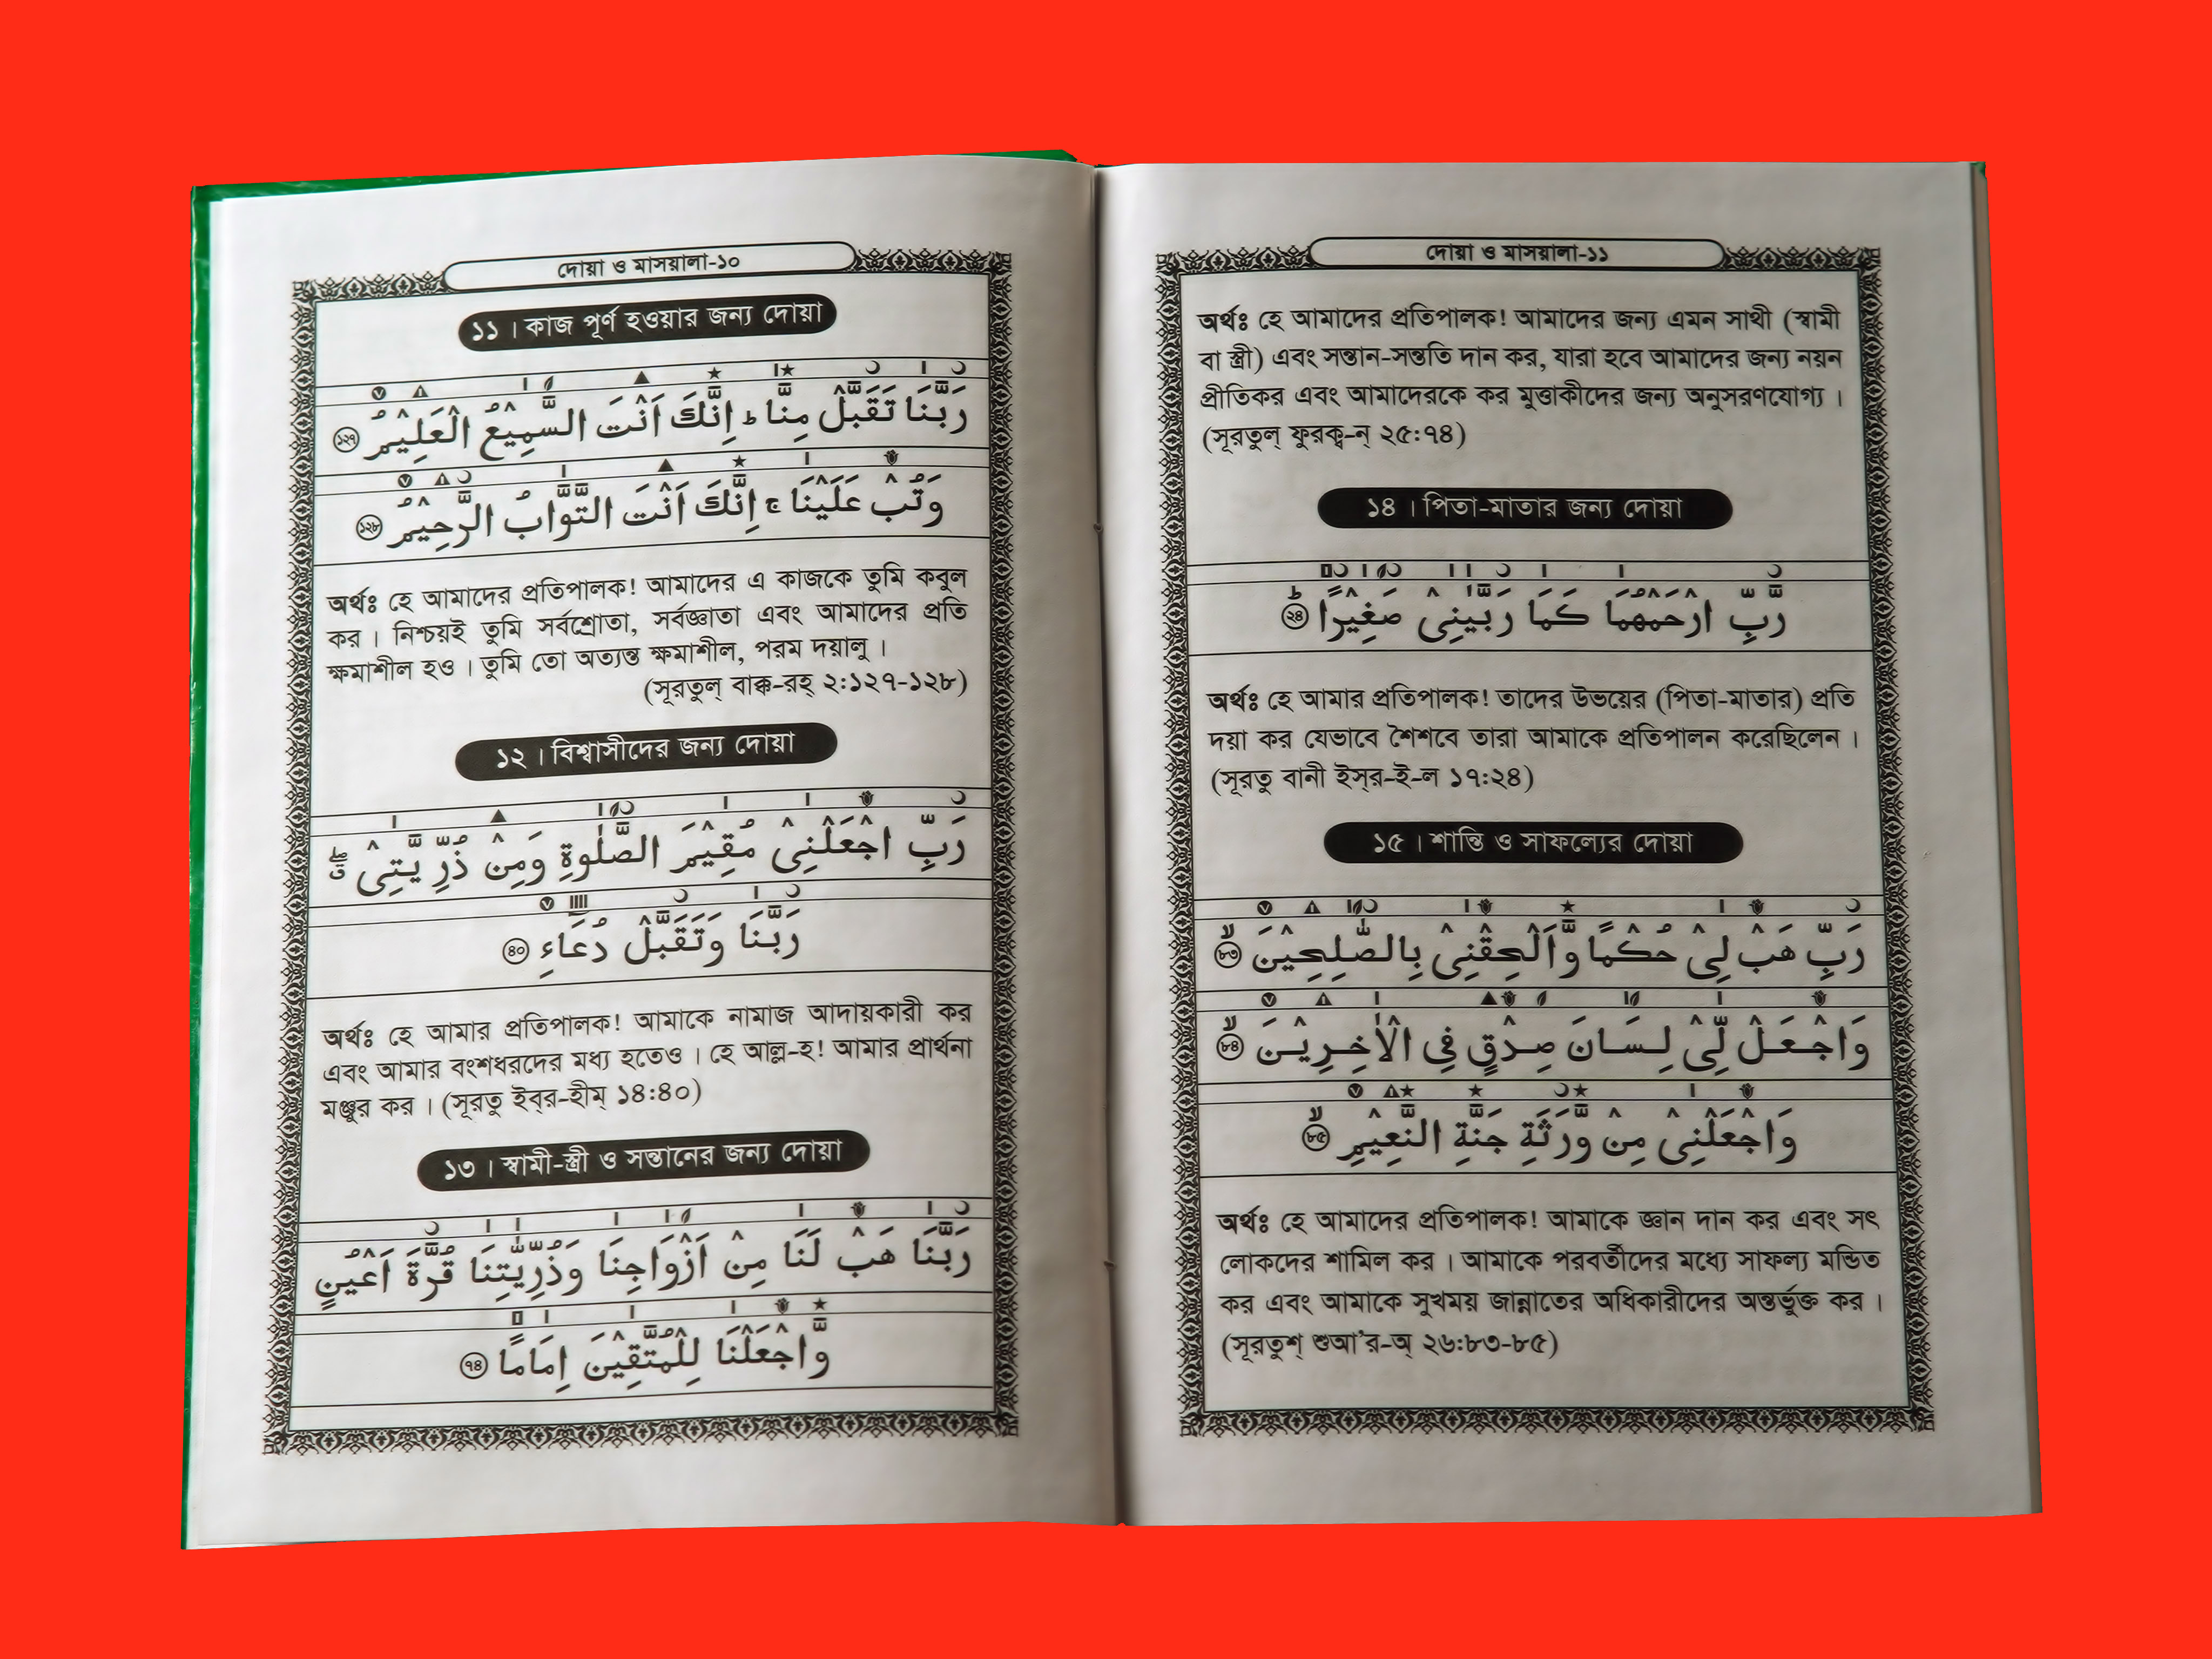 দোয়া ও মাসয়ালা-১০
১১। কাজ পূর্ণ হওয়ার জন্য দোয়া
رَبَّنَا تَقَبَّلْ مِنَّا ؕ اِنَّكَ اَنْتَ السَّمِيْعُ الْعَلِيْمُ ١٢٧
وَتُبْ عَلَيْنَا ۚ اِنَّكَ اَنْتَ التَّوَّابُ الرَّحِيْمُ ١٢٨
অর্থঃ হে আমাদের প্রতিপালক! আমাদের এ কাজকে তুমি কবুল
কর। নিশ্চয়ই তুমি সর্বশ্রোতা, সর্বজ্ঞাতা এবং আমাদের প্রতি
ক্ষমাশীল হও। তুমি তো অত্যন্ত ক্ষমাশীল, পরম দয়ালু।
(সূরতুল্ বাক্ক-রহ্ ২:১২৭-১২৮)
১২। বিশ্বাসীদের জন্য দোয়া
رَبِّ اجْعَلْنِىْ مُقِيْمَ الصَّلٰوةِ وَمِنْ ذُرِّ يَّتِىْ ۖق
رَبَّنَا وَتَقَبَّلْ دُعَآءِ ٤٠
অর্থঃ হে আমার প্রতিপালক! আমাকে নামাজ আদায়কারী কর
এবং আমার বংশধরদের মধ্য হতেও। হে আল্ল-হ! আমার প্রার্থনা
মঞ্জুর কর। (সূরতু ইব্‌র-হীম্ ১৪:৪০)
১৩। স্বামী-স্ত্রী ও সন্তানের জন্য দোয়া
رَبَّنَا هَبْ لَنَا مِنْ اَزْوَاجِنَا وَذُرِّيّٰتِنَا قُرَّةَ اَعْيُنٍ
وَّاجْعَلْنَا لِلْمُتَّقِيْنَ اِمَامًا ٧٤
দোয়া ও মাসয়ালা-১১
অর্থঃ হে আমাদের প্রতিপালক! আমাদের জন্য এমন সাথী (স্বামী
বা স্ত্রী) এবং সন্তান-সন্ততি দান কর, যারা হবে আমাদের জন্য নয়ন
প্রীতিকর এবং আমাদেরকে কর মুত্তাকীদের জন্য অনুসরণযোগ্য।
(সূরতুল্ ফুরক্ব-ন্ ২৫:৭৪)
১৪। পিতা-মাতার জন্য দোয়া
رَّبِّ ارْحَمْهُمَا كَمَا رَبَّيٰنِىْ صَغِيْرًا ؕ ٢٤
অর্থঃ হে আমার প্রতিপালক! তাদের উভয়ের (পিতা-মাতার) প্রতি
দয়া কর যেভাবে শৈশবে তারা আমাকে প্রতিপালন করেছিলেন।
(সূরতু বানী ইস্‌র-ই-ল ১৭:২৪)
১৫। শান্তি ও সাফল্যের দোয়া
رَبِّ هَبْ لِىْ حُكْمًا وَّاَلْحِقْنِىْ بِالصّٰلِحِيْنَ ۙ ٨٣
وَاجْعَلْ لِّىْ لِسَانَ صِدْقٍ فِى الْاٰخِرِيْنَ ۙ ٨٤
وَاجْعَلْنِىْ مِنْ وَّرَثَةِ جَنَّةِ النَّعِيْمِ ۙ ٨٥
অর্থঃ হে আমাদের প্রতিপালক! আমাকে জ্ঞান দান কর এবং সৎ
লোকদের শামিল কর। আমাকে পরবর্তীদের মধ্যে সাফল্য মন্ডিত
কর এবং আমাকে সুখময় জান্নাতের অধিকারীদের অন্তর্ভুক্ত কর।
(সূরতুশ্ শুআ’র-অ্ ২৬:৮৩-৮৫)